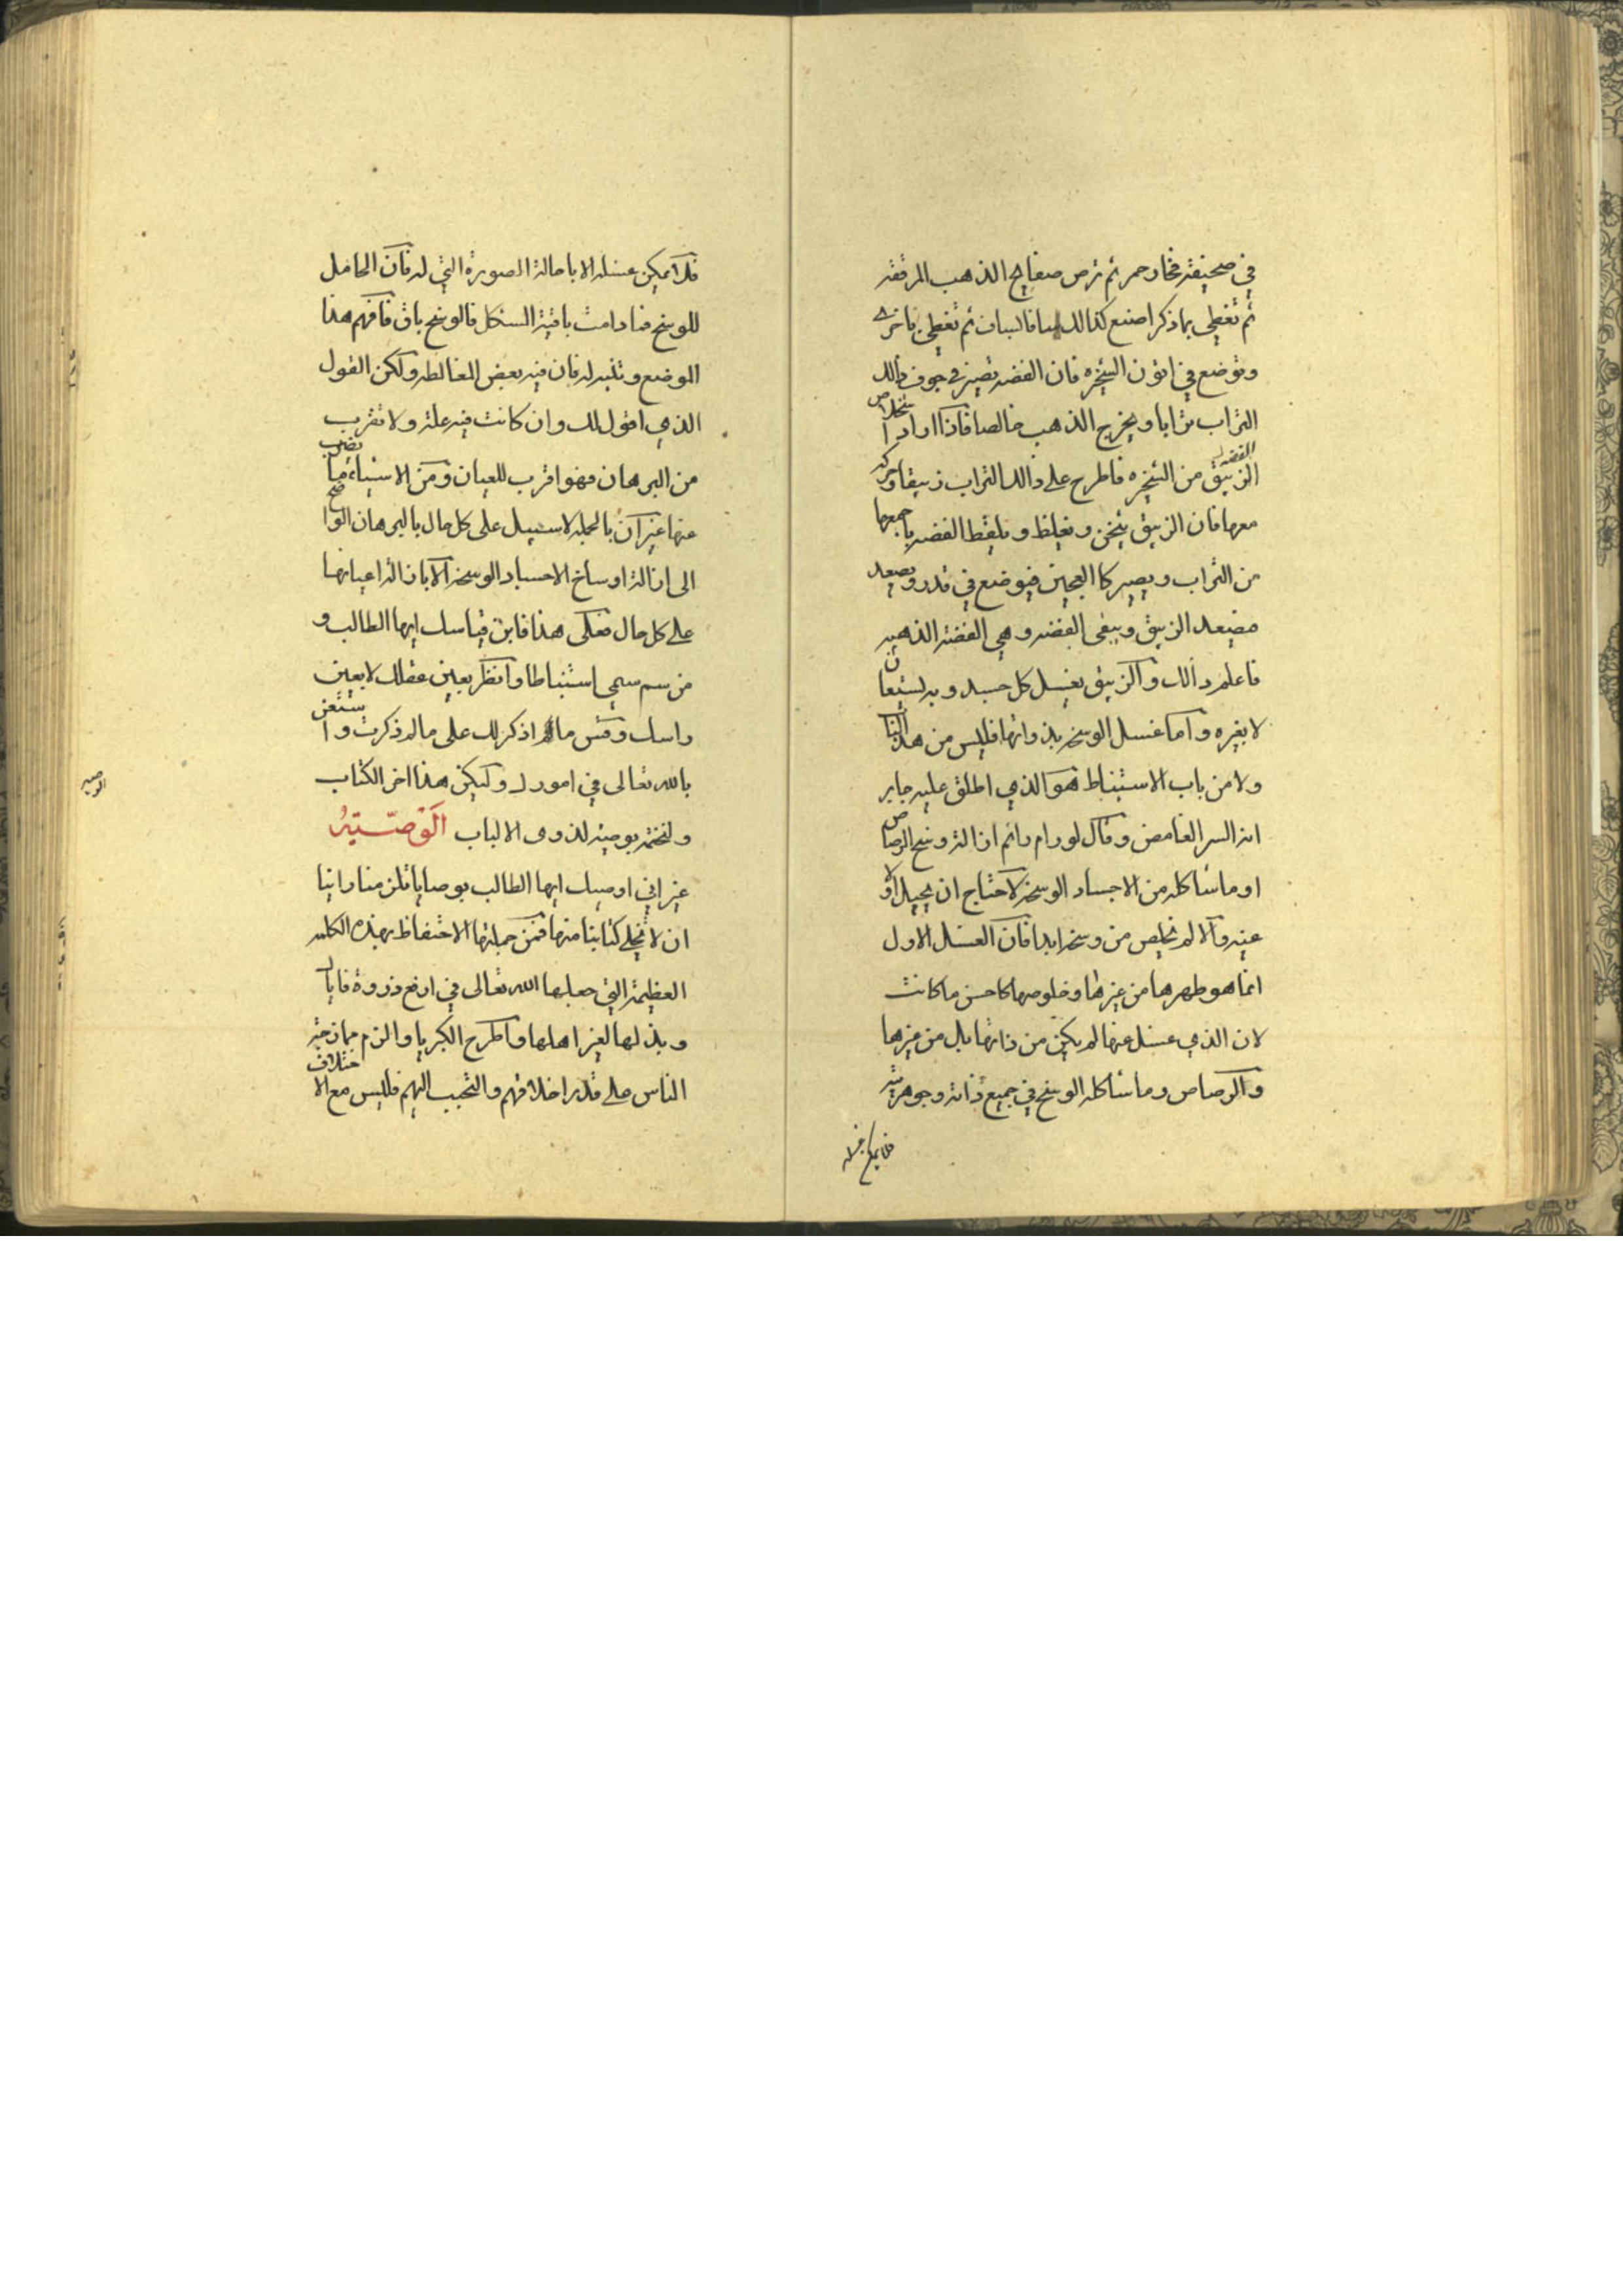 في صحيفة فخار حمر ثم ترص صفايح الذهب المرققه
ثم تغطي بما ذكرا صنع كذالك سافا لسبان ثم تغطي باخرى
وتوضع في اتون الشيخره فان الفضه تصير في جوف ذالك
التراب ترابا ويخرج الذهب خالصا فاذا اراد استخلاص
الفضه الزيبق من الشيخره فاطرح على ذالك التراب زيبقا وحركه
معها فان الزيبق يثخن ويغلظ ويلقط الفضه باجمعها
من التراب ويصير كا العجين فيوضع في قدر ويصعد
فيصعد الزيبق ويبقى الفضه وهي الفضة الذهبيه
فاعلم ذالك والزيبق يغسل كل جسد وبه يستعان
لا بغيره واما غسل الوسخه بذواتها فليس من هذا الباب
ولا من باب الاستنباط هو الذي اطلق عليه جابر
انه السر الغامض وقال لو رام رائم ازالة وسخ الرصاص
او ما شاكله من الاجساد الوسخه لاحتاج ان يحيل اولا
عينه والا لم تخلص من وسخه ابدا فان الغسل الاول
انما هو طهرها من غيرها وخلوصها كاحسن ما كانت
لان الذي غسل عنها لم يكن من ذاتها بل من غيرها
والرصاص وما شاكله الوسخ في جميع ذاته وجوهريته
فلا يمكن غسله
فلا يمكن غسله الا باحالة الصورة التي له فان الحامل
للوسخ فما دامت باقية الشكل فالوسخ باق فافهم هذا
الموضع وتنبه له فان فيه بعض المغالطه ولكن القول
الذي اقول لك وان كانت فيه علة ولا تقرب
من البرهان فهو اقرب للعيان ومن الاشياء ما يضرب
عنها غير ان بالجمله لا سبيل على كل حال بالبرهان الواضح
الى ازالة اوساخ الاجساد الوسخه الا بازالة اعيانها
على كل حال فعلى هذا فابن قياسك ايها الطالب و
من سم سمي استنباطا وانظر بعين عقلك لا بعين
راسك وقس ما لم اذكر لك على ما له ذكرت واستعن
بالله تعالى في امورك وليكن هذا اخر الكتاب
ولنختمه بوصية لذوى الالباب الوصية
غير اني اوصيك ايها الطالب بوصايا تلزمنا راينا
ان لا نخلي كتابنا منها فمن جملتها الاحتفاظ بهذه الكلمه
العظيمة التي جعلها الله تعالى في ارفع ذروة فاياك
وبذلها لغير اهلها واطرح الكبريا والزم ممازجة
الناس على قدر اخلاقهم والتحبب اليهم فليس مع الاختلاف
الوصيه